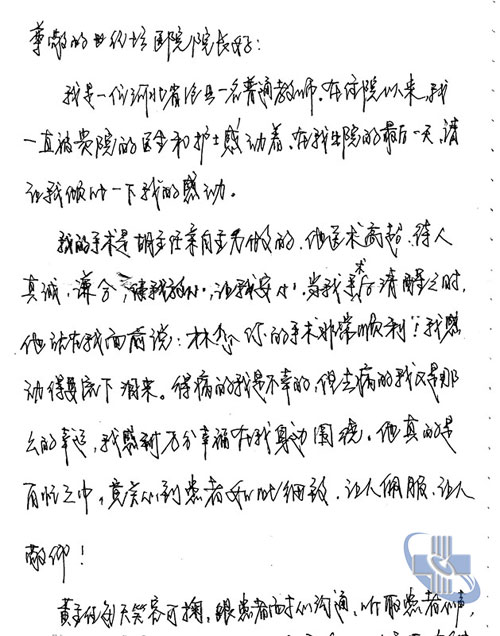 尊敬的世纪坛医院院长好：
我是一位河北省沧县一名普通教师。在住院以来，我
一直被贵院的医生和护士感动着，在我出院的最后一天，请
让我倾吐一下我的感动。
我的手术是胡主任亲自主刀做的，他医术高超、待人
真诚、谦分，让我安心，当我术后清醒之时，
他站在我面前说：您的手术非常顺利！我感
动得要流下泪来。得病的我是不幸的，但生病的我又是那
么的幸运，我感到万分幸福在我身边围绕。他真的是
百忙之中，竟关心到患者如此细致，让人佩服，让人
敬仰！
黄主任每天笑容可掬，跟患者耐心沟通，听取患者心声，